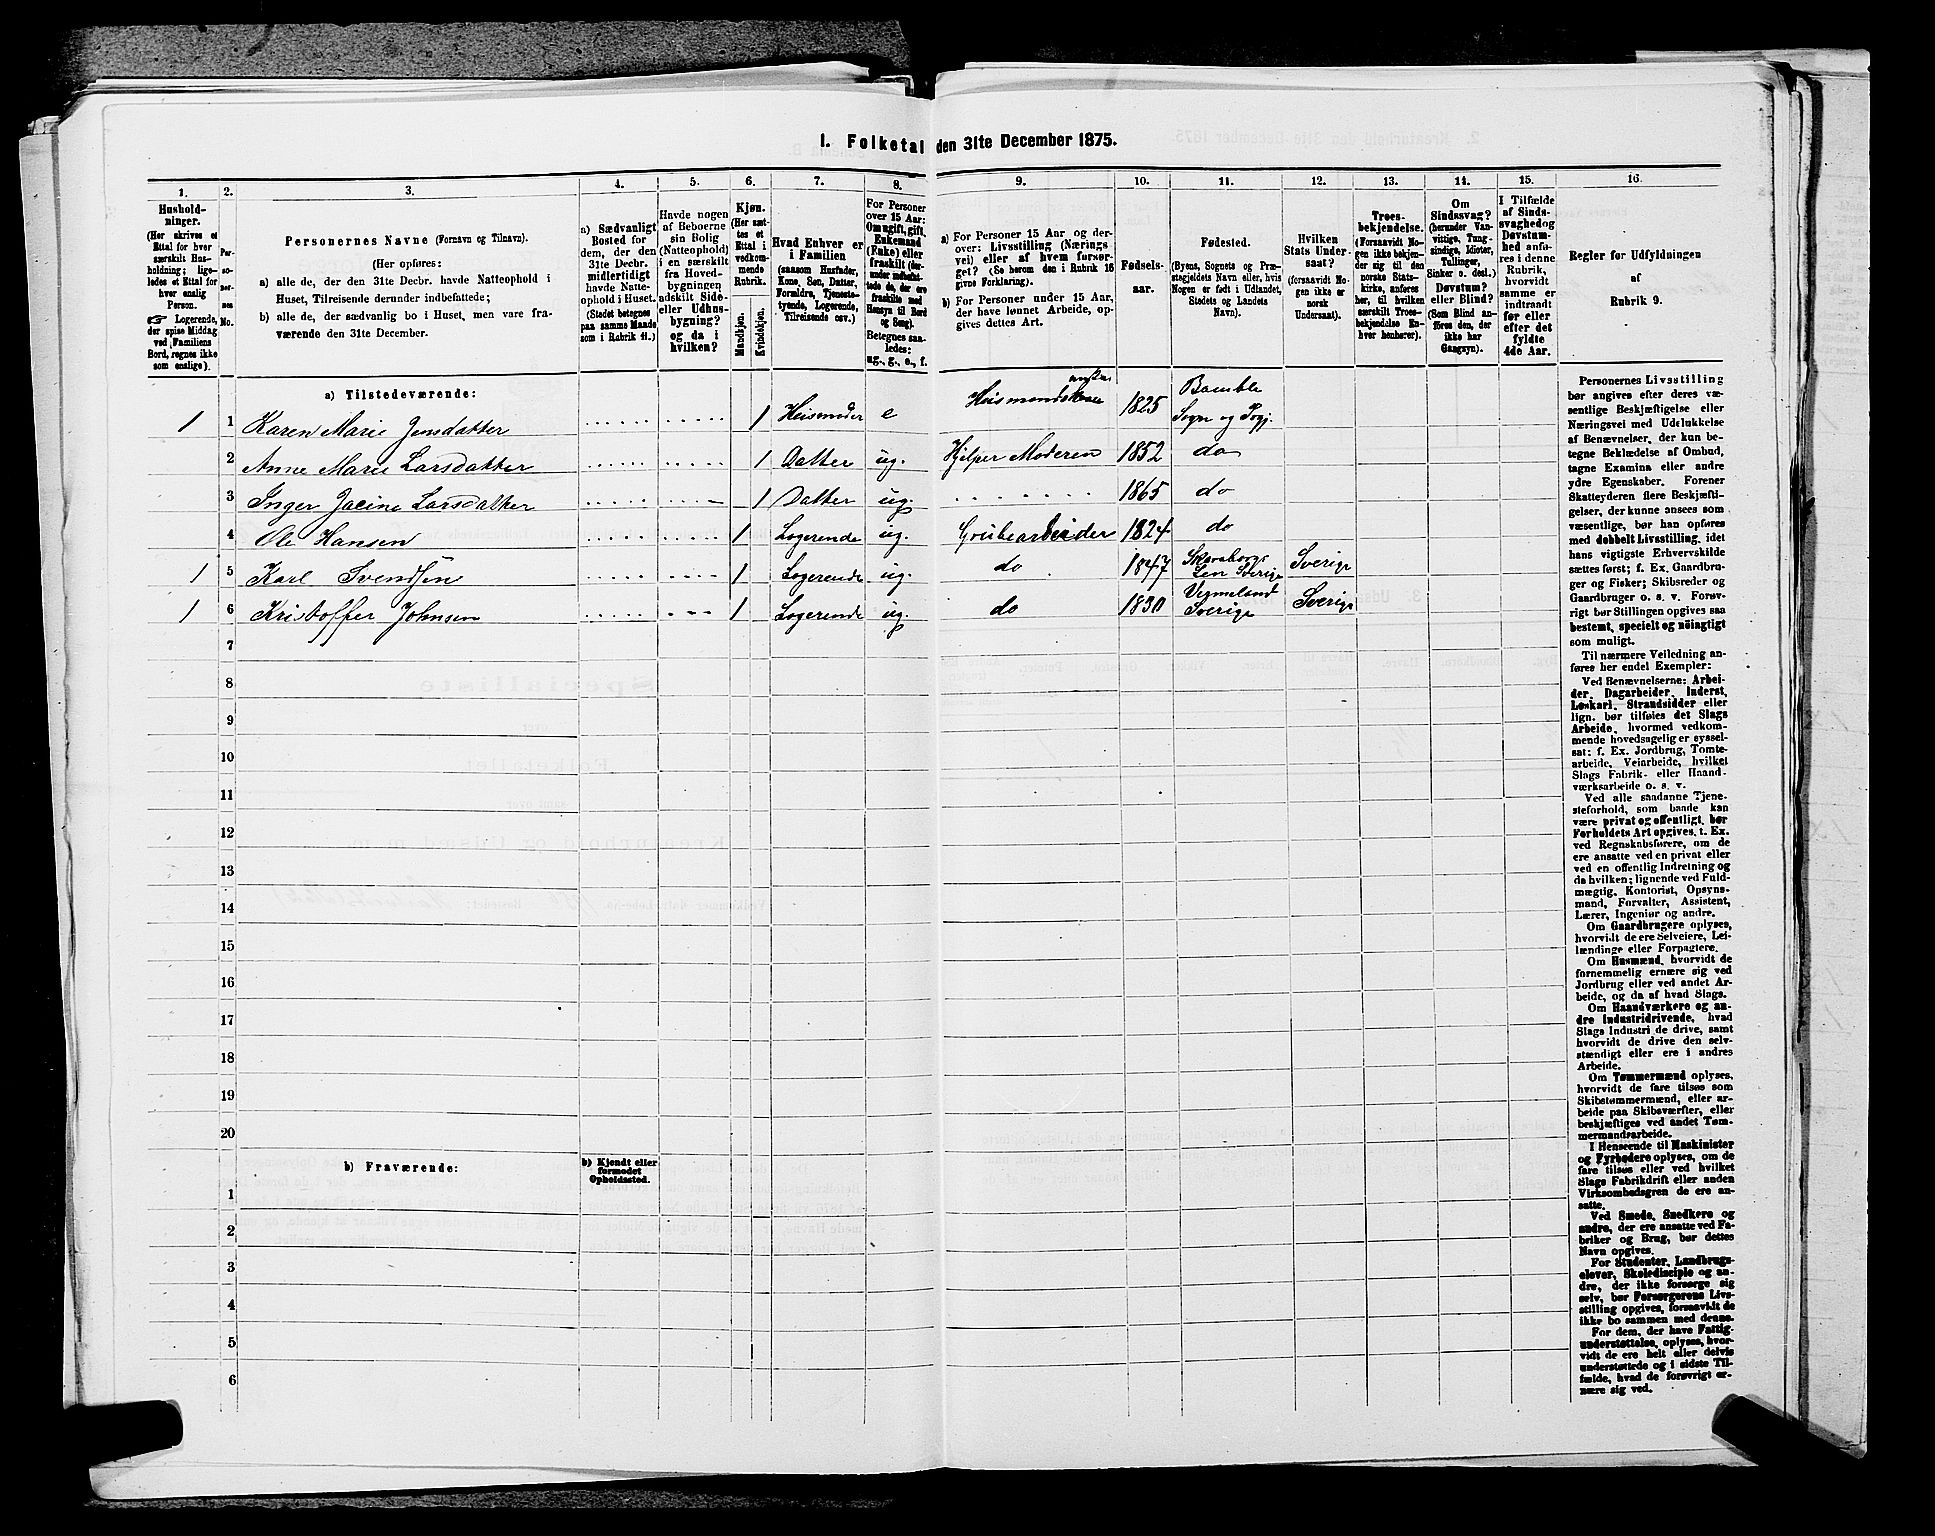 1. Folketal den 31te December 1875.
1.
2.
3.
4.
5.
6.
7.
8.
9.
10.
11.
12.
13.
14.
15.
16.
Hushold-
ninger.
(Her skrives et
Ettal for hver
særskilt Hus-
holdning; lige-
ledes et Ettal for
hver enslig
Person.
☞ Logerende,
der spise Middag
ved Familiens
Bord, regnes ikke
som enslige).
Per-
so-
ner-
nes
No.
Personernes Navne (Fornavn og Tilnavn).
(Her opføres:
a) alle de, der den 31te Decbr. havde Natteophold i
Huset, Tilreisende derunder indbefattede;
b) alle de, der sædvanlig bo i Huset, men vare fra-
værende den 31te December.
a) Sædvanligt
Bosted for
dem, der den
31te Decbr.
midlertidigt
havde Natte-
ophold i Huset.
(Stedet betegnes
paa samme Maade
som i Rubrik 11.)
Havde nogen
af Beboerne
sin Bolig
(Natteophold)
i en særskilt
fra Hoved-
bygningen
adskilt Side-
eller Udhus-
bygning?
og da i
hvilken?
Kjøn.
(Her sæt-
tes et
Ettal i
vedkom-
mende
Rubrik.
Mandkjøn.
Kvindekjøn.
Hvad Enhver er
i Familien
(saasom Husfader,
Kone, Søn, Datter,
Forældre, Tjeneste-
tyende, Logerende,
Tilreisende osv.)
For Personer
over 15 Aar:
Om ugift, gift,
Enkemand
(Enke) eller
fraskilt (her-
under indbefat-
tede de, der ere
fraskilte med
Hensyn til Bord
og Seng).
Betegnes saa-
ledes:
ug., g., e., f.
a) For Personer 15 Aar og der-
over: Livsstilling (Nærings-
vei) eller af hvem forsør-
get? (Se herom den i Rubrik 16
givne Forklaring).
b) For Personer under 15 Aar,
der have lønnet Arbeide, op-
gives dettes Art.
Fødsels-
aar.
Fødested.
(Byens, Sognets og Præ-
stegjeldets Navn eller, hvis
Nogen er født i Udlandet,
Stedets og Landets
Navn).
Hvilken
Stats Under-
saat?
(forsaavidt No-
gen ikke er
norsk
Undersaat).
Troes-
bekjendelse.
(Forsaavidt No-
gen ikke bekjen-
der sig til den
norske Stats-
kirke, anføres
her, til hvilken
særskilt Troes-
bekjendelse En-
hver henhører).
Om
Sindssvag?
(herunder Van-
vittige, Tung-
sindige, Idioter,
Tullinger,
Sinker o. desl.)
Døvstum?
eller Blind?
(Som Blind an-
føres den, der
ikke har
Gangsyn).
I Tilfælde
af Sinds-
svaghed og
Døvstum-
hed anfø-
res i denne
Rubrik,
hvorvidt
samme er
indtraadt
før eller
efter det
fyldte
4de Aar.
Regler for Udfyldningen
af
Rubrik 9.
a) Tilstedeværende:
1 1 Karen Marie Jensdatter 1 Husmoder e Husmandsenke 1825 Bamble
Sogn og Prgj.
2 Anne Marie Larsdatter 1 Datter ug. Hjelper Moderen 1852 do
3 Inger Jacine Larsdatter 1 Datter ug. 1865 do
4 Ole Hansen 1 Logerende ug. Grubearbeider 1824 do
1 5 Karl Svendsen 1 Logerende ug. do 1847 Skaraborgs
Len Sverige Sverige
1 6 Kristoffer Johnsen 1 Logerende ug. do 1830 Vermeland
Sverige Sverige
7
8
9
10
11
12
13
14
15
16
17
18
19
20
b) Fraværende:
b) Kjendt eller
formodet
Opholdssted.
1
2
3
4
5
6
Personernes Livsstilling
bør angives efter deres væ-
sentlige Beskjæftigelse eller
Næringsvei med Udelukkelse
af Benævnelser, der kun be-
tegne Beklædelse af Ombud,
tagne Examina eller andre
ydre Egenskaber. Forener
Skatteyderen flere Beskjæfti-
gelser, der kunne ansees som
væsentlige, bør han opføres
med dobbelt Livsstilling, idet
hans vigtigste Erhvervskilde
sættes først; f. Ex. Gaardbru-
ger og Fisker; Skibsreder og
Gaardbruger o. s. v. Forøv-
rigt bør Stillingen opgives saa
bestemt, specielt og nöiagtigt
som muligt.
Til nærmere Veiledning an-
føres her endel Exempler:
Ved Benævnelserne: Arbei-
der, Dagarbeider, Inderst,
Løskarl, Strandsidder eller
lign. bør tilføies det Slags
Arbeide, hvormed vedkom-
mende hovedsagelig er syssel-
sat; f. Ex. Jordbrug, Tomte-
arbeide, Veiarbeide, hvilket
Slags Fabrik- eller Haand-
værksarbeide o. s. v.
Ved alle saadanne Tjene-
steforhold, som baade kan
være privat og offentligt, bør
Forholdets Art opgives, t. Ex.
ved Regnskabsførere, om de
ere ansatte ved en privat eller
ved en offentlig Indretning og
da hvilken; lignende ved Fuld-
mægtig, Kontorist, Opsyns-
mand, Forvalter, Assistent,
Lærer, Ingeniør og andre.
Om Gaardbrugere oplyses,
hvorvidt de ere Selveiere, Lei-
lændinge eller Forpagtere.
Om Husmænd, hvorvidt de
fornemmelig ernære sig ved
Jordbrug eller ved andet Ar-
beide, og da af hvad Slags.
Om Haandværkere og an-
dre Industridrivende, hvad
Slags Industri de drive, samt
hvorvidt de drive den selv-
stændigt eller ere i andres
Arbeide.
Om Tømmermænd oplyses,
hvorvidt de fare tilsøs som
Skibstømmermænd, eller ar-
beide paa Skibsværfter, eller
beskjæftiges ved andet Tøm-
mermandsarbeide.
I Henseende til Maskinister
og Fyrbødere oplyses, om de
fare tilsøs eller ved hvilket
Slags Fabrikdrift eller anden
Virksomhedsgren de ere an-
satte.
Ved Smede, Snedkere og
andre, der ere ansatte ved Fa-
briker og Brug, bør dettes
Navn opgives.
For Studenter, Landbrugs-
elever, Skoledisciple og an-
dre, der ikke forsørge sig
selv, bør Forsørgerens Livs-
stilling opgives, forsaavidt de
ikke bo sammen med denne.
For dem, der have Fattig-
understøttelse, oplyses, hvor-
vidt de ere helt eller delvis
understøttede og i sidste Til-
fælde, hvad de forøvrigt er-
nære sig ved.